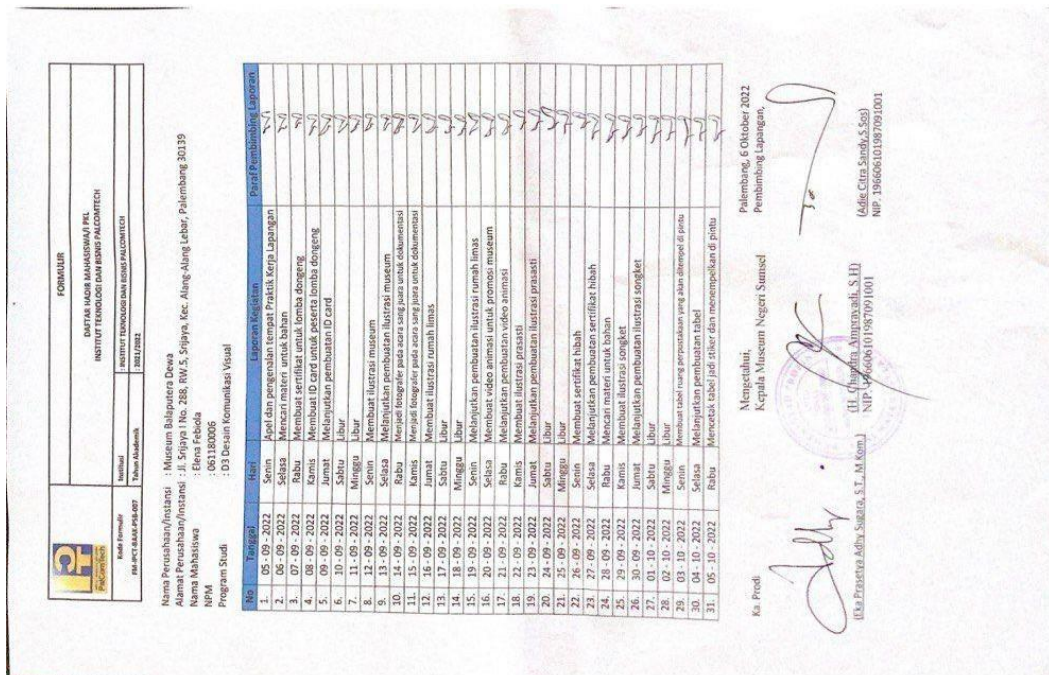 PalComTech
FORMULIR
DAFTAR HADIR MAHASISWA/I PKL
INSTITUT TEKNOLOGI DAN BISNIS PALCOMTECH
Kode Formulir Institusi : INSTITUT TEKNOLOGI DAN BISNIS PALCOMTECH
FM-IPCT-BAAK-PSB-007 Tahun Akademik : 2021/2022
Nama Perusahaan/Instansi : Museum Balaputera Dewa
Alamat Perusahaan/Instansi : Jl. Srijaya I No. 288, RW.5, Srijaya, Kec. Alang-Alang Lebar, Palembang 30139
Nama Mahasiswa : Elena Febiola
NPM : 061180006
Program Studi : D3 Desain Komunikasi Visual
No Tanggal Hari Laporan Kegiatan Paraf Pembimbing Laporan
1. 05 - 09 - 2022 Senin Apel dan pengenalan tempat Praktik Kerja Lapangan
2. 06 - 09 - 2022 Selasa Mencari materi untuk bahan
3. 07 - 09 - 2022 Rabu Membuat sertifikat untuk lomba dongeng
4. 08 - 09 - 2022 Kamis Membuat ID card untuk peserta lomba dongeng
5. 09 - 09 - 2022 Jumat Melanjutkan pembuatan ID card
6. 10 - 09 - 2022 Sabtu Libur
7. 11 - 09 - 2022 Minggu Libur
8. 12 - 09 - 2022 Senin Membuat ilustrasi museum
9. 13 - 09 - 2022 Selasa Melanjutkan pembuatan ilustrasi museum
10. 14 - 09 - 2022 Rabu Menjadi fotografer pada acara sang juara untuk dokumentasi
11. 15 - 09 - 2022 Kamis Menjadi fotografer pada acara sang juara untuk dokumentasi
12. 16 - 09 - 2022 Jumat Membuat ilustrasi rumah limas
13. 17 - 09 - 2022 Sabtu Libur
14. 18 - 09 - 2022 Minggu Libur
15. 19 - 09 - 2022 Senin Melanjutkan pembuatan ilustrasi rumah limas
16. 20 - 09 - 2022 Selasa Membuat video animasi untuk promosi museum
17. 21 - 09 - 2022 Rabu Melanjutkan pembuatan video animasi
18. 22 - 09 - 2022 Kamis Membuat ilustrasi prasasti
19. 23 - 09 - 2022 Jumat Melanjutkan pembuatan ilustrasi prasasti
20. 24 - 09 - 2022 Sabtu Libur
21. 25 - 09 - 2022 Minggu Libur
22. 26 - 09 - 2022 Senin Membuat sertifikat hibah
23. 27 - 09 - 2022 Selasa Melanjutkan pembuatan sertifikat hibah
24. 28 - 09 - 2022 Rabu Mencari materi untuk bahan
25. 29 - 09 - 2022 Kamis Membuat ilustrasi songket
26. 30 - 09 - 2022 Jumat Melanjutkan pembuatan ilustrasi songket
27. 01 - 10 - 2022 Sabtu Libur
28. 02 - 10 - 2022 Minggu Libur
29. 03 - 10 - 2022 Senin Membuat tabel ruang perpustakaan yang akan ditempel di pintu
30. 04 - 10 - 2022 Selasa Melanjutkan pembuatan tabel
31. 05 - 10 - 2022 Rabu Mencetak tabel jadi stiker dan menempelkan di pintu
Palembang, 6 Oktober 2022
Ka. Prodi Mengetahui, Pembimbing Lapangan,
Kepala Museum Negeri Sumsel
(Eka Prasetya Adhy Sugara, S.T., M.Kom.) (H. Chandra Amprayadi, S.H) (Adie Citra Sandy, S.Sos)
NIP. 196606101987091001 NIP. 196606101987091001